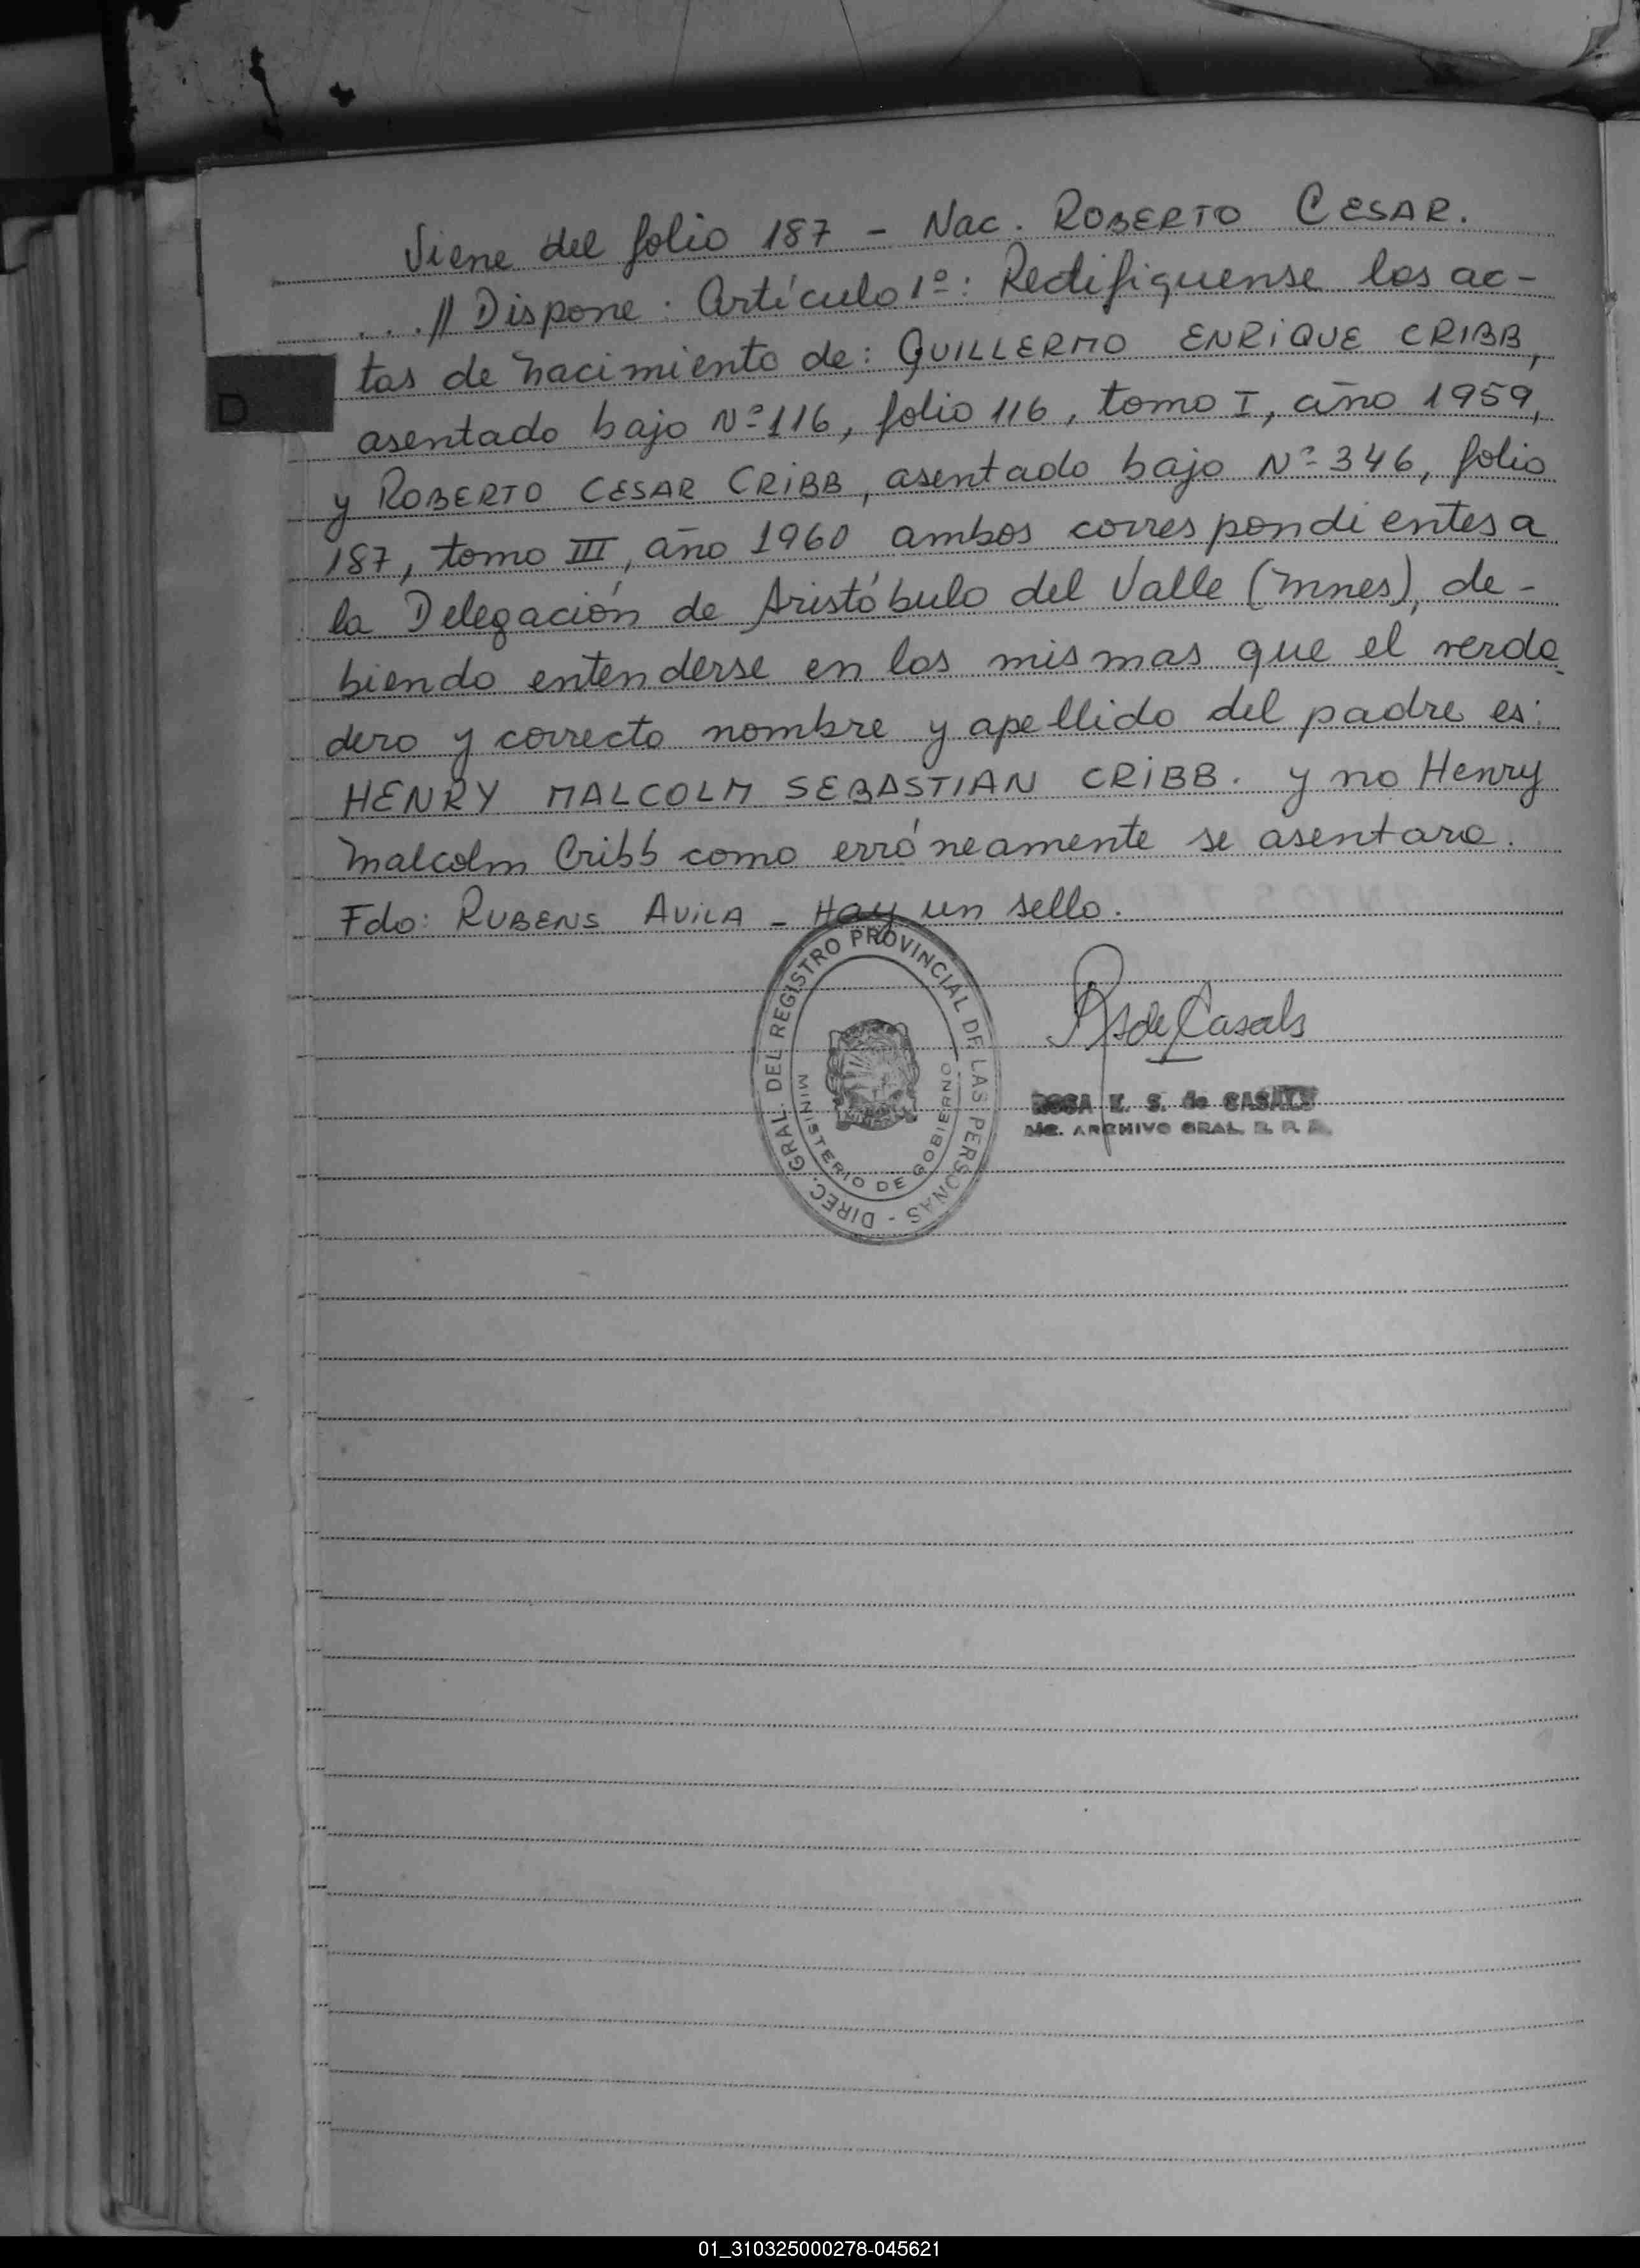 Viene del folio 187 - Nac. ROBERTO CESAR.
...// Dispone: Artículo 1º: Rectifíquense las ac-
tas de nacimiento de: GUILLERMO ENRIQUE CRIBB,
D
asentado bajo Nº 116, folio 116, tomo I, año 1959,
y ROBERTO CESAR CRIBB, asentado bajo Nº 346, folio
187, tomo III, año 1960 ambos correspondientes a
la Delegación de Aristóbulo del Valle (Mnes), de-
biendo entenderse en las mismas que el verda-
dero y correcto nombre y apellido del padre es:
HENRY MALCOLM SEBASTIAN CRIBB. y no Henry
Malcolm Cribb como erróneamente se asentara.
Fdo: RUBENS AVILA - Hay un sello.
DIREC. GRAL. DEL REGISTRO PROVINCIAL DE LAS PERSONAS -
MINISTERIO DE GOBIERNO
de Casals
ROSA E. S. de CASALS
ARCHIVO GRAL. R. P.
01_310325000278-045621